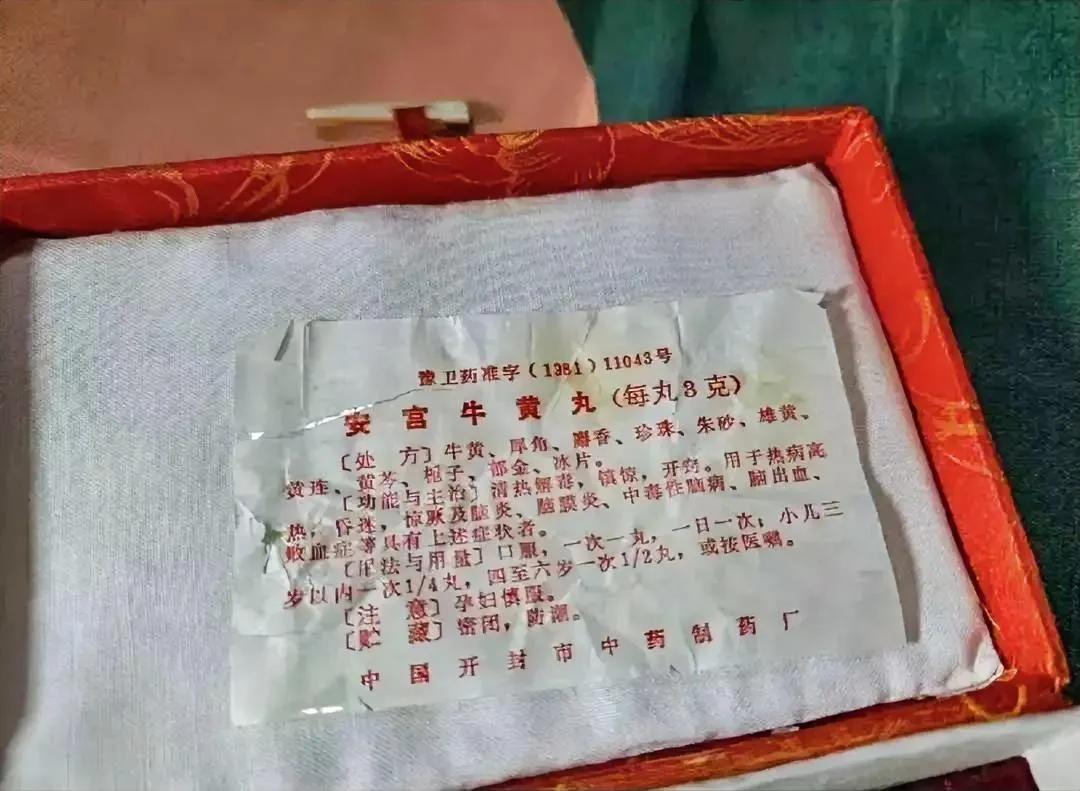 豫卫药准字(1981)11043号
安宫牛黄丸(每丸3克)
〔处 方〕牛黄、犀角、麝香、珍珠、朱砂、雄黄、
黄连、黄芩、栀子、郁金、冰片。
〔功能与主治〕清热解毒,镇惊,开窍。用于热病高
热,昏迷,惊厥及脑炎、脑膜炎、中毒性脑病、脑出血、
败血症等具有上述症状者。
〔用法与用量〕口服,一次一丸,一日一次;小儿三
岁以内一次1/4丸,四至六岁一次1/2丸,或按医嘱。
〔注 意〕孕妇慎服。
〔贮 藏〕密闭,防潮。
中国开封市中药制药厂